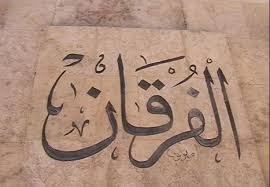 الفرقان